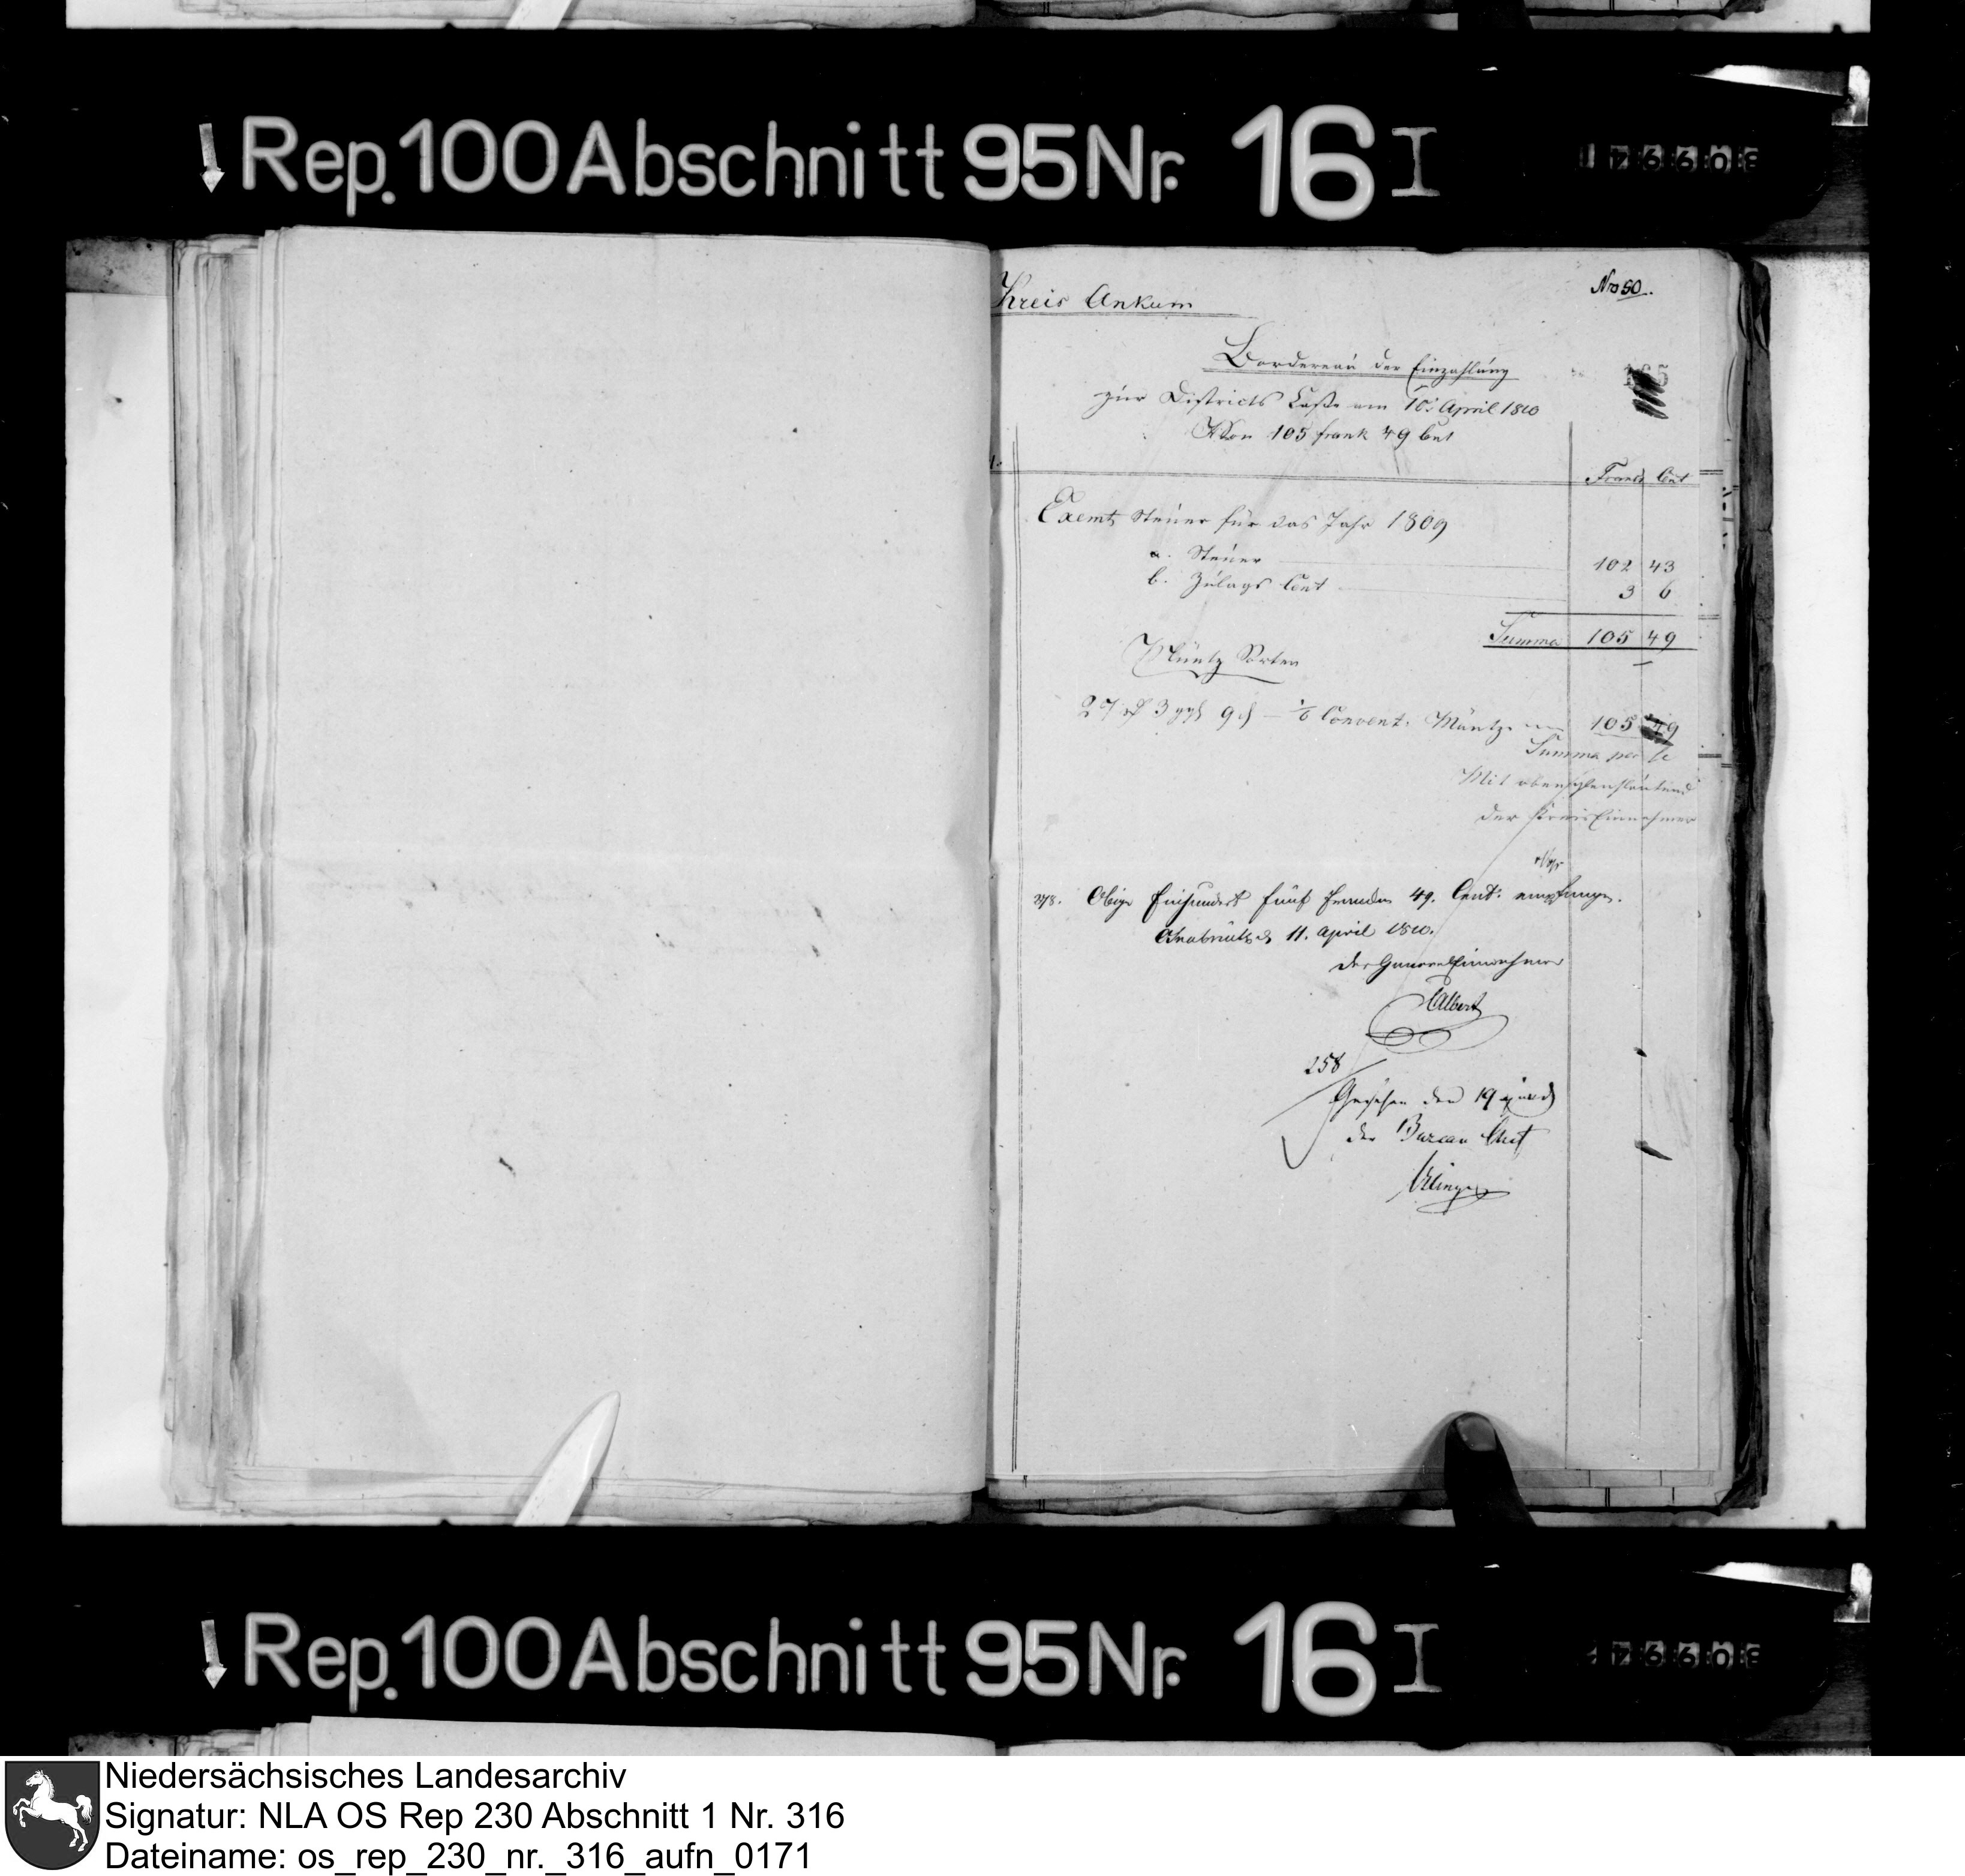 Rep. 100 Abschnitt 95 Nr. 16 I
Kreis Ankum
Nro 50.
Bordereau der Einzahlung
zur Districts Casse am 10t April 1810
Von 105 frank 49 Cent
Francs Cent
Exemt Steuer für das Jahr 1809
a. Steuer 102 43
b. Zulags Cent 3 6
Summa 105 49
Müntz Sorten
27 rt 3 ggl 9 d – 1/6 Convent: Müntze 105 49
Summa per se
der Kreis Einnehmer
378. Obige Einhundert fünf Franken 49. Cent: empfangen.
Osnabrück d. 11. April 1810.
Der General Einnehmer
Albert
258
Gesehen den 19
der Bureau Chef
Rep. 100 Abschnitt 95 Nr. 16 I
Niedersächsisches Landesarchiv
Signatur: NLA OS Rep 230 Abschnitt 1 Nr. 316
Dateiname: os_rep_230_nr._316_aufn_0171